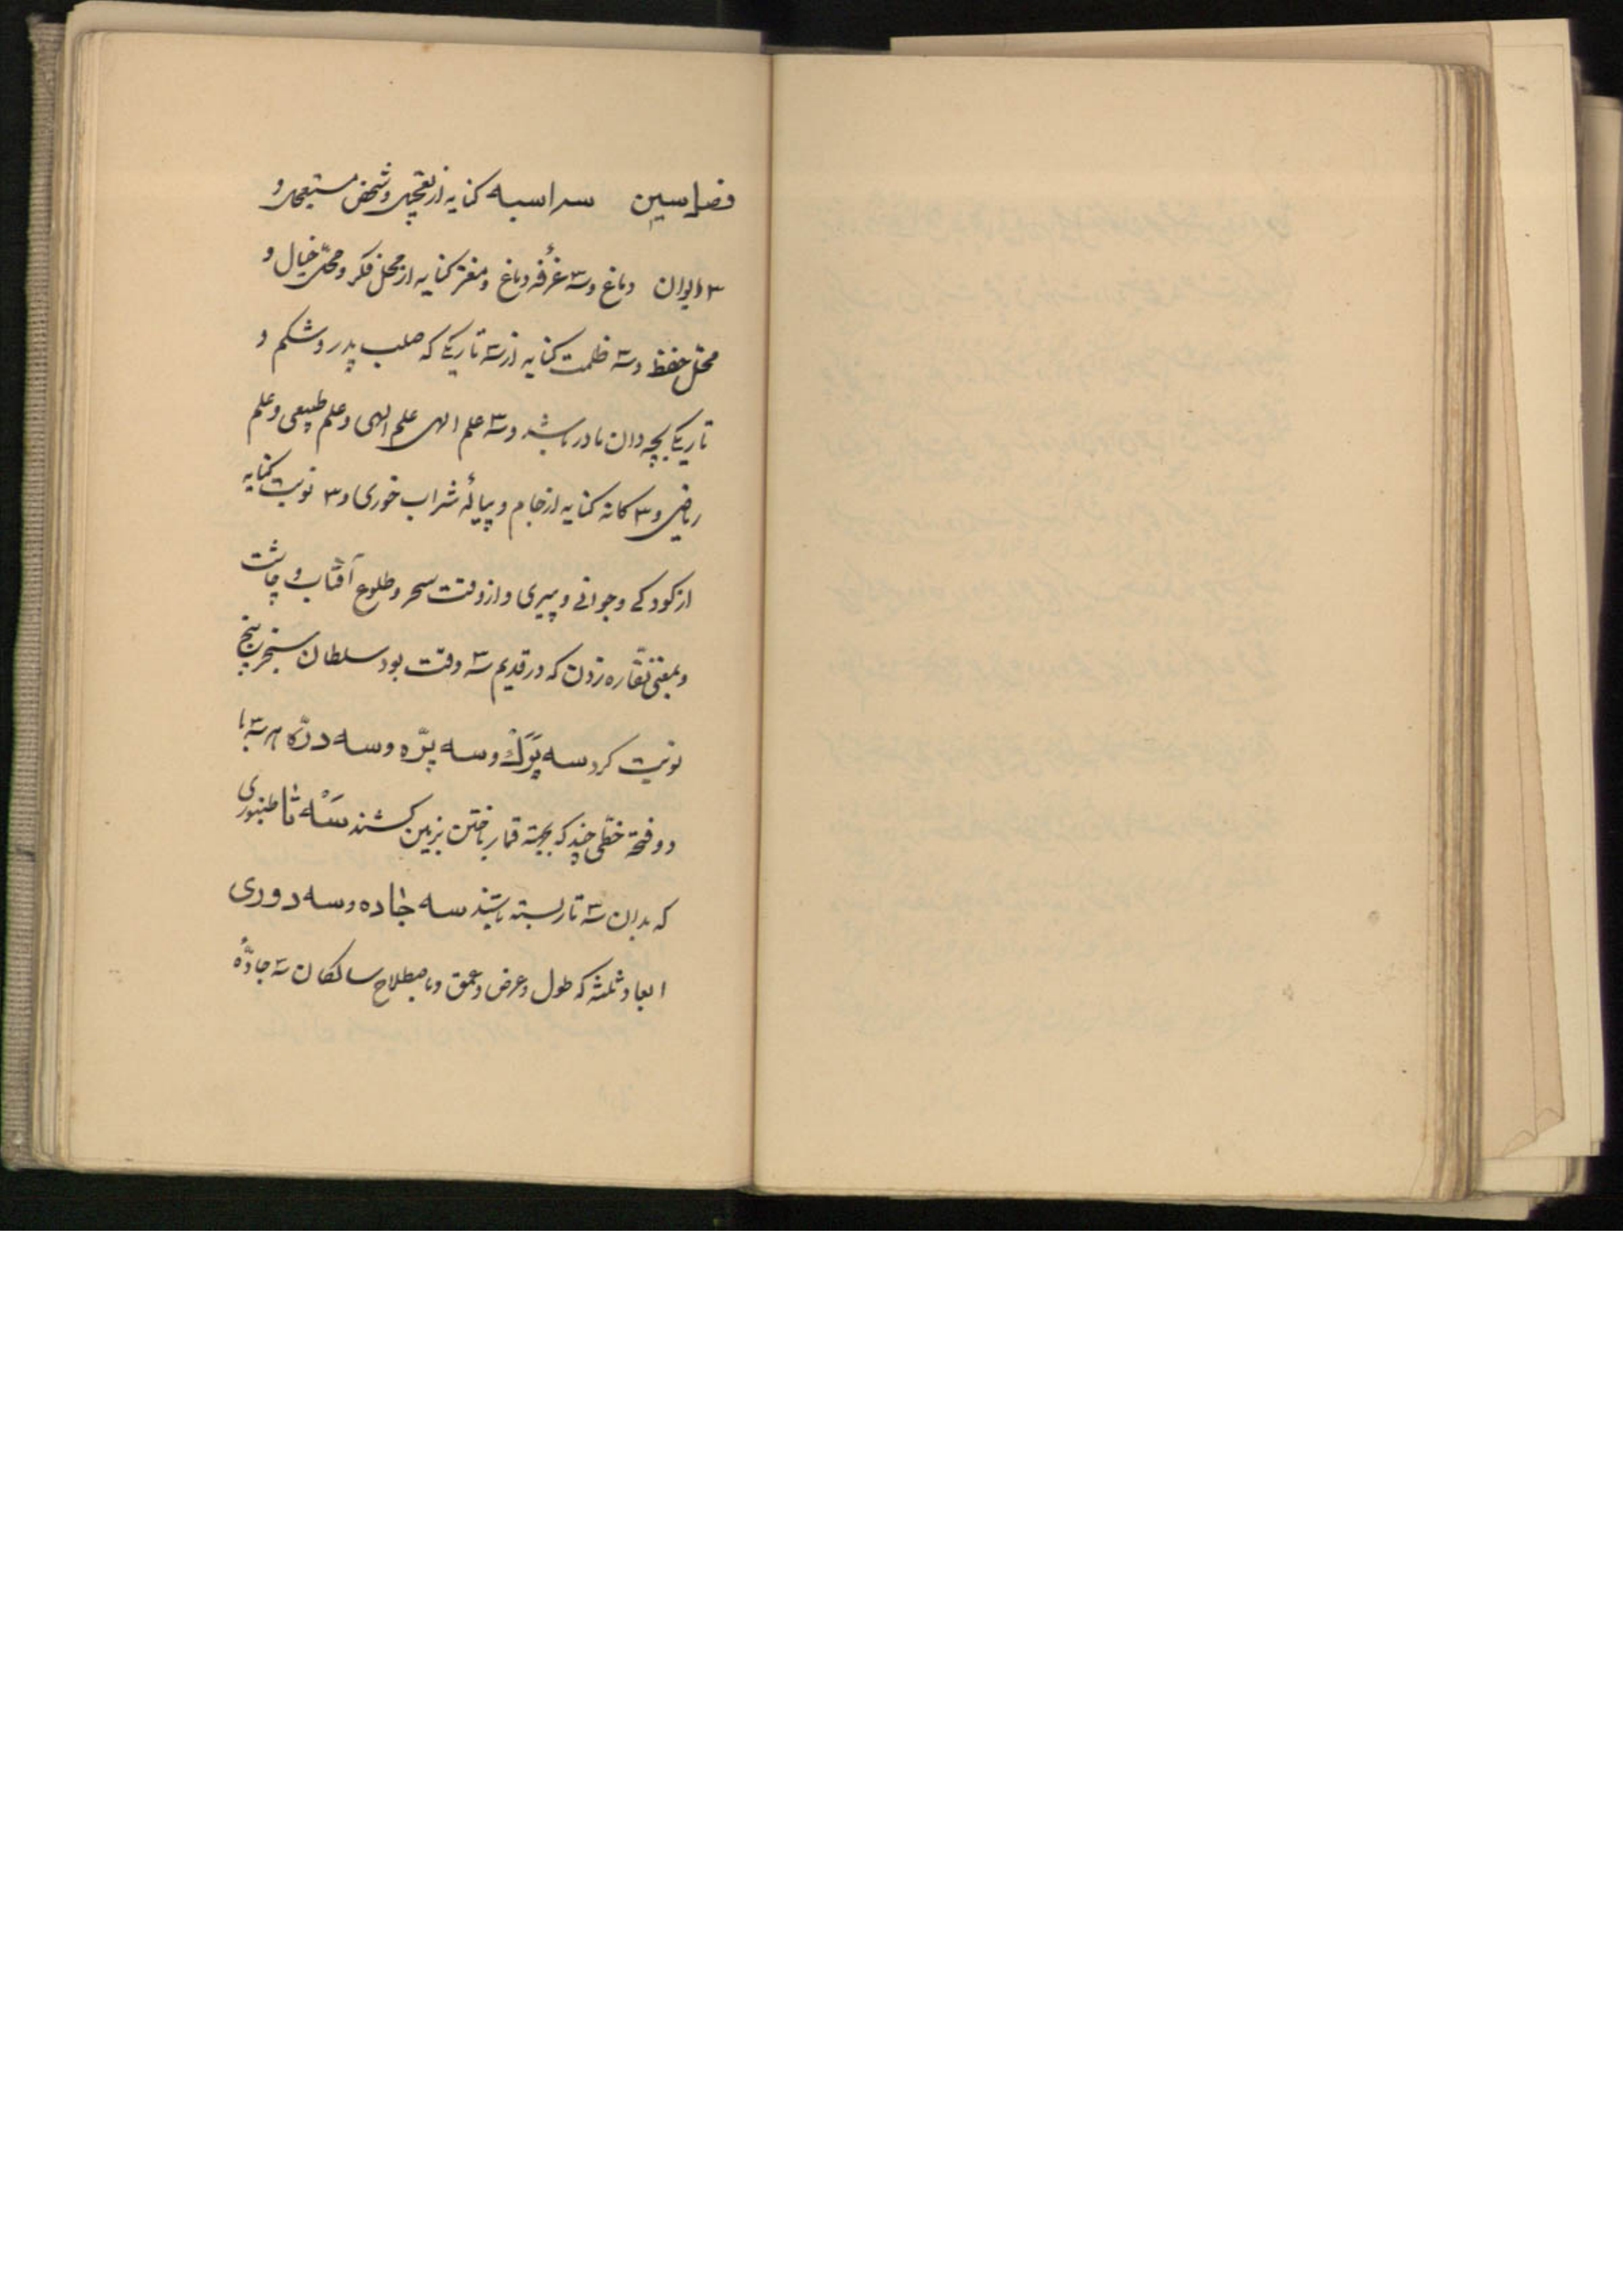 فصل سین سه اسبه کنایه از تعجیل و شخص مستعجل و
۳ ایوان دماغ و سه غرفه دماغ و مغز کنایه از محل فکر و محل خیال و
محل حفظ و سه ظلمت کنایه از سه تاریکی که صلب پدر و شکم و
تاریکی بچه دان مادر باشد و سه علم الهی علم الهی و علم طبیعی و علم
ریاضی و ۳ کانه کنایه از جام و پیالهٔ شراب خوری و ۳ نوبت کنایه
از کودکی و جوانی و پیری و از وقت سحر و طلوع آفتاب و چاشت
و بمعنی نقّاره زدن که در قدیم سه وقت بود سلطان سنجر پنج
نوبت کرد سه پَرَک و سه پرّه و سه درّه هر سه با
دو فتحه خطی چند که بجهة قمار باختن بزمین کشند سَه تا طنبوری
که بدان سه تار بسته باشند سه جاده و سه دوری
ابعاد ثلثه که طول و عرض و عمق و باصطلاح سالکان سه جادّهٔ